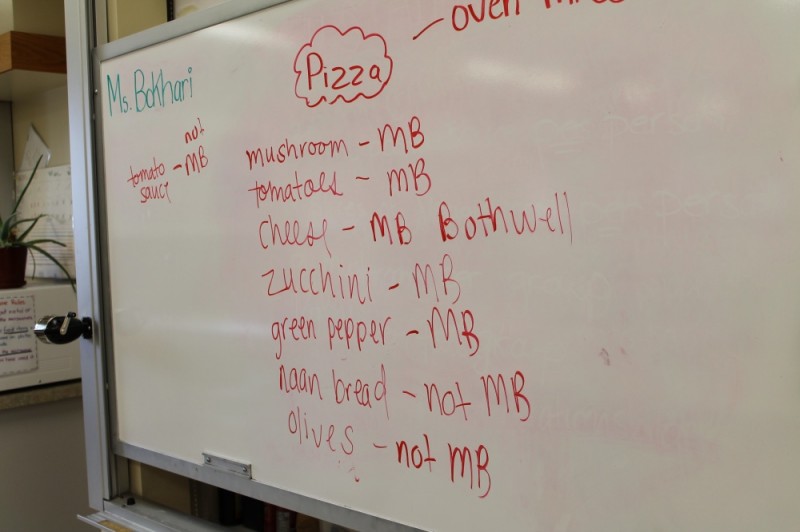 oven
Pizza
Ms. Bokhari
tomato sauce - not MB
mushroom - MB
tomatoes - MB
cheese - MB Bothwell
zucchini - MB
green pepper - MB
naan bread - not MB
olives - not MB